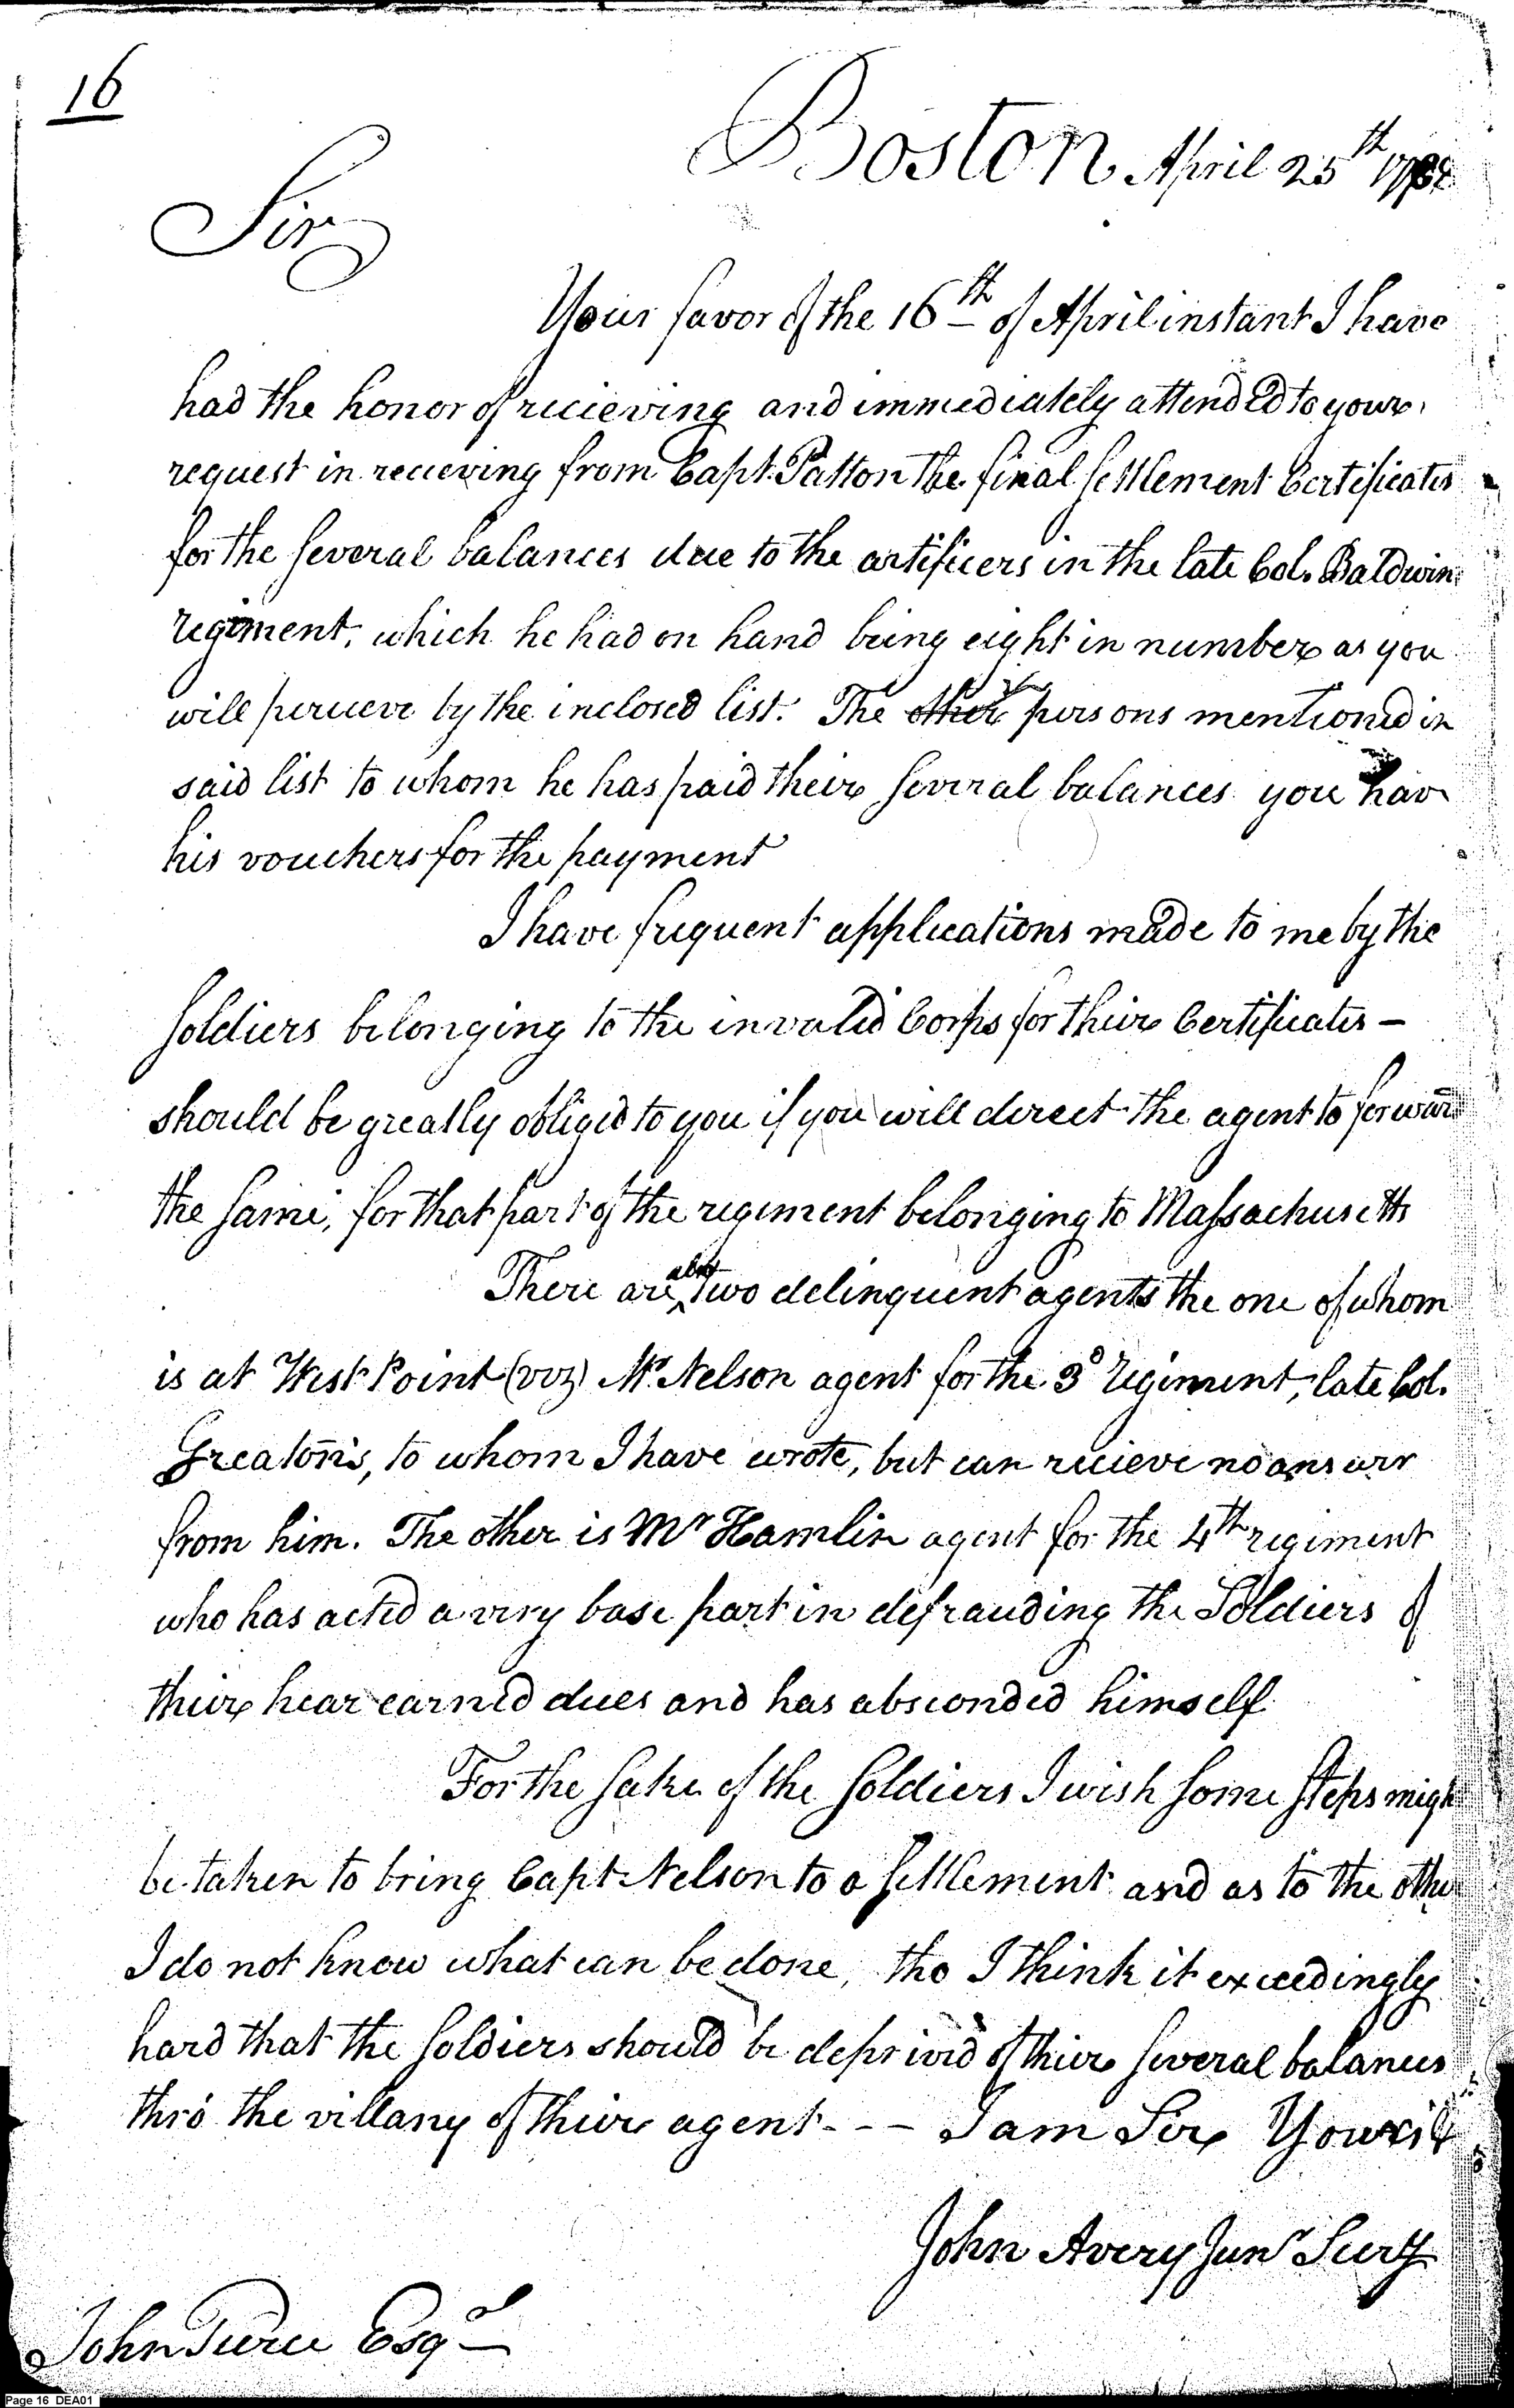 16
Boston April 25th 178
Sir
Your favor of the 16th of April instant I have
had the honor of recieving and immediately attended to your
request in recieving from Capt. Patton the final settlement Certificates
for the several balances due to the artificers in the late Col. Baldwin
regiment, which he had on hand being eight in number as you
will percieve by the inclosed list. The other persons mentioned in
said list to whom he has paid their several balances you have
his vouchers for the payment
I have frequent applications made to me by the
soldiers belonging to the invalid Corps for their Certificates –
should be greatly obliged to you if you will direct the agent to forward
the same, for that part of the regiment belonging to Massachusetts
There are also two delinquent agents the one of whom
is at West Point (viz) Mr. Nelson agent for the 3d regiment, late Col.
Greaton's, to whom I have wrote, but can recieve no answer
from him. The other is Mr Hamlin agent for the 4th regiment
who has acted a very base part in defrauding the Soldiers of
their hear earned dues and has absconded himself
For the sake of the soldiers I wish some steps migh
be taken to bring Capt Nelson to a settlement and as to the other
I do not know what can be done, tho I think it exceedingly
hard that the soldiers should be deprived of their several balances
thro' the villany of their agent - - - I am Sir Your
John Avery Junr Secry
John Pierce Esqr
Page 16 DEA01